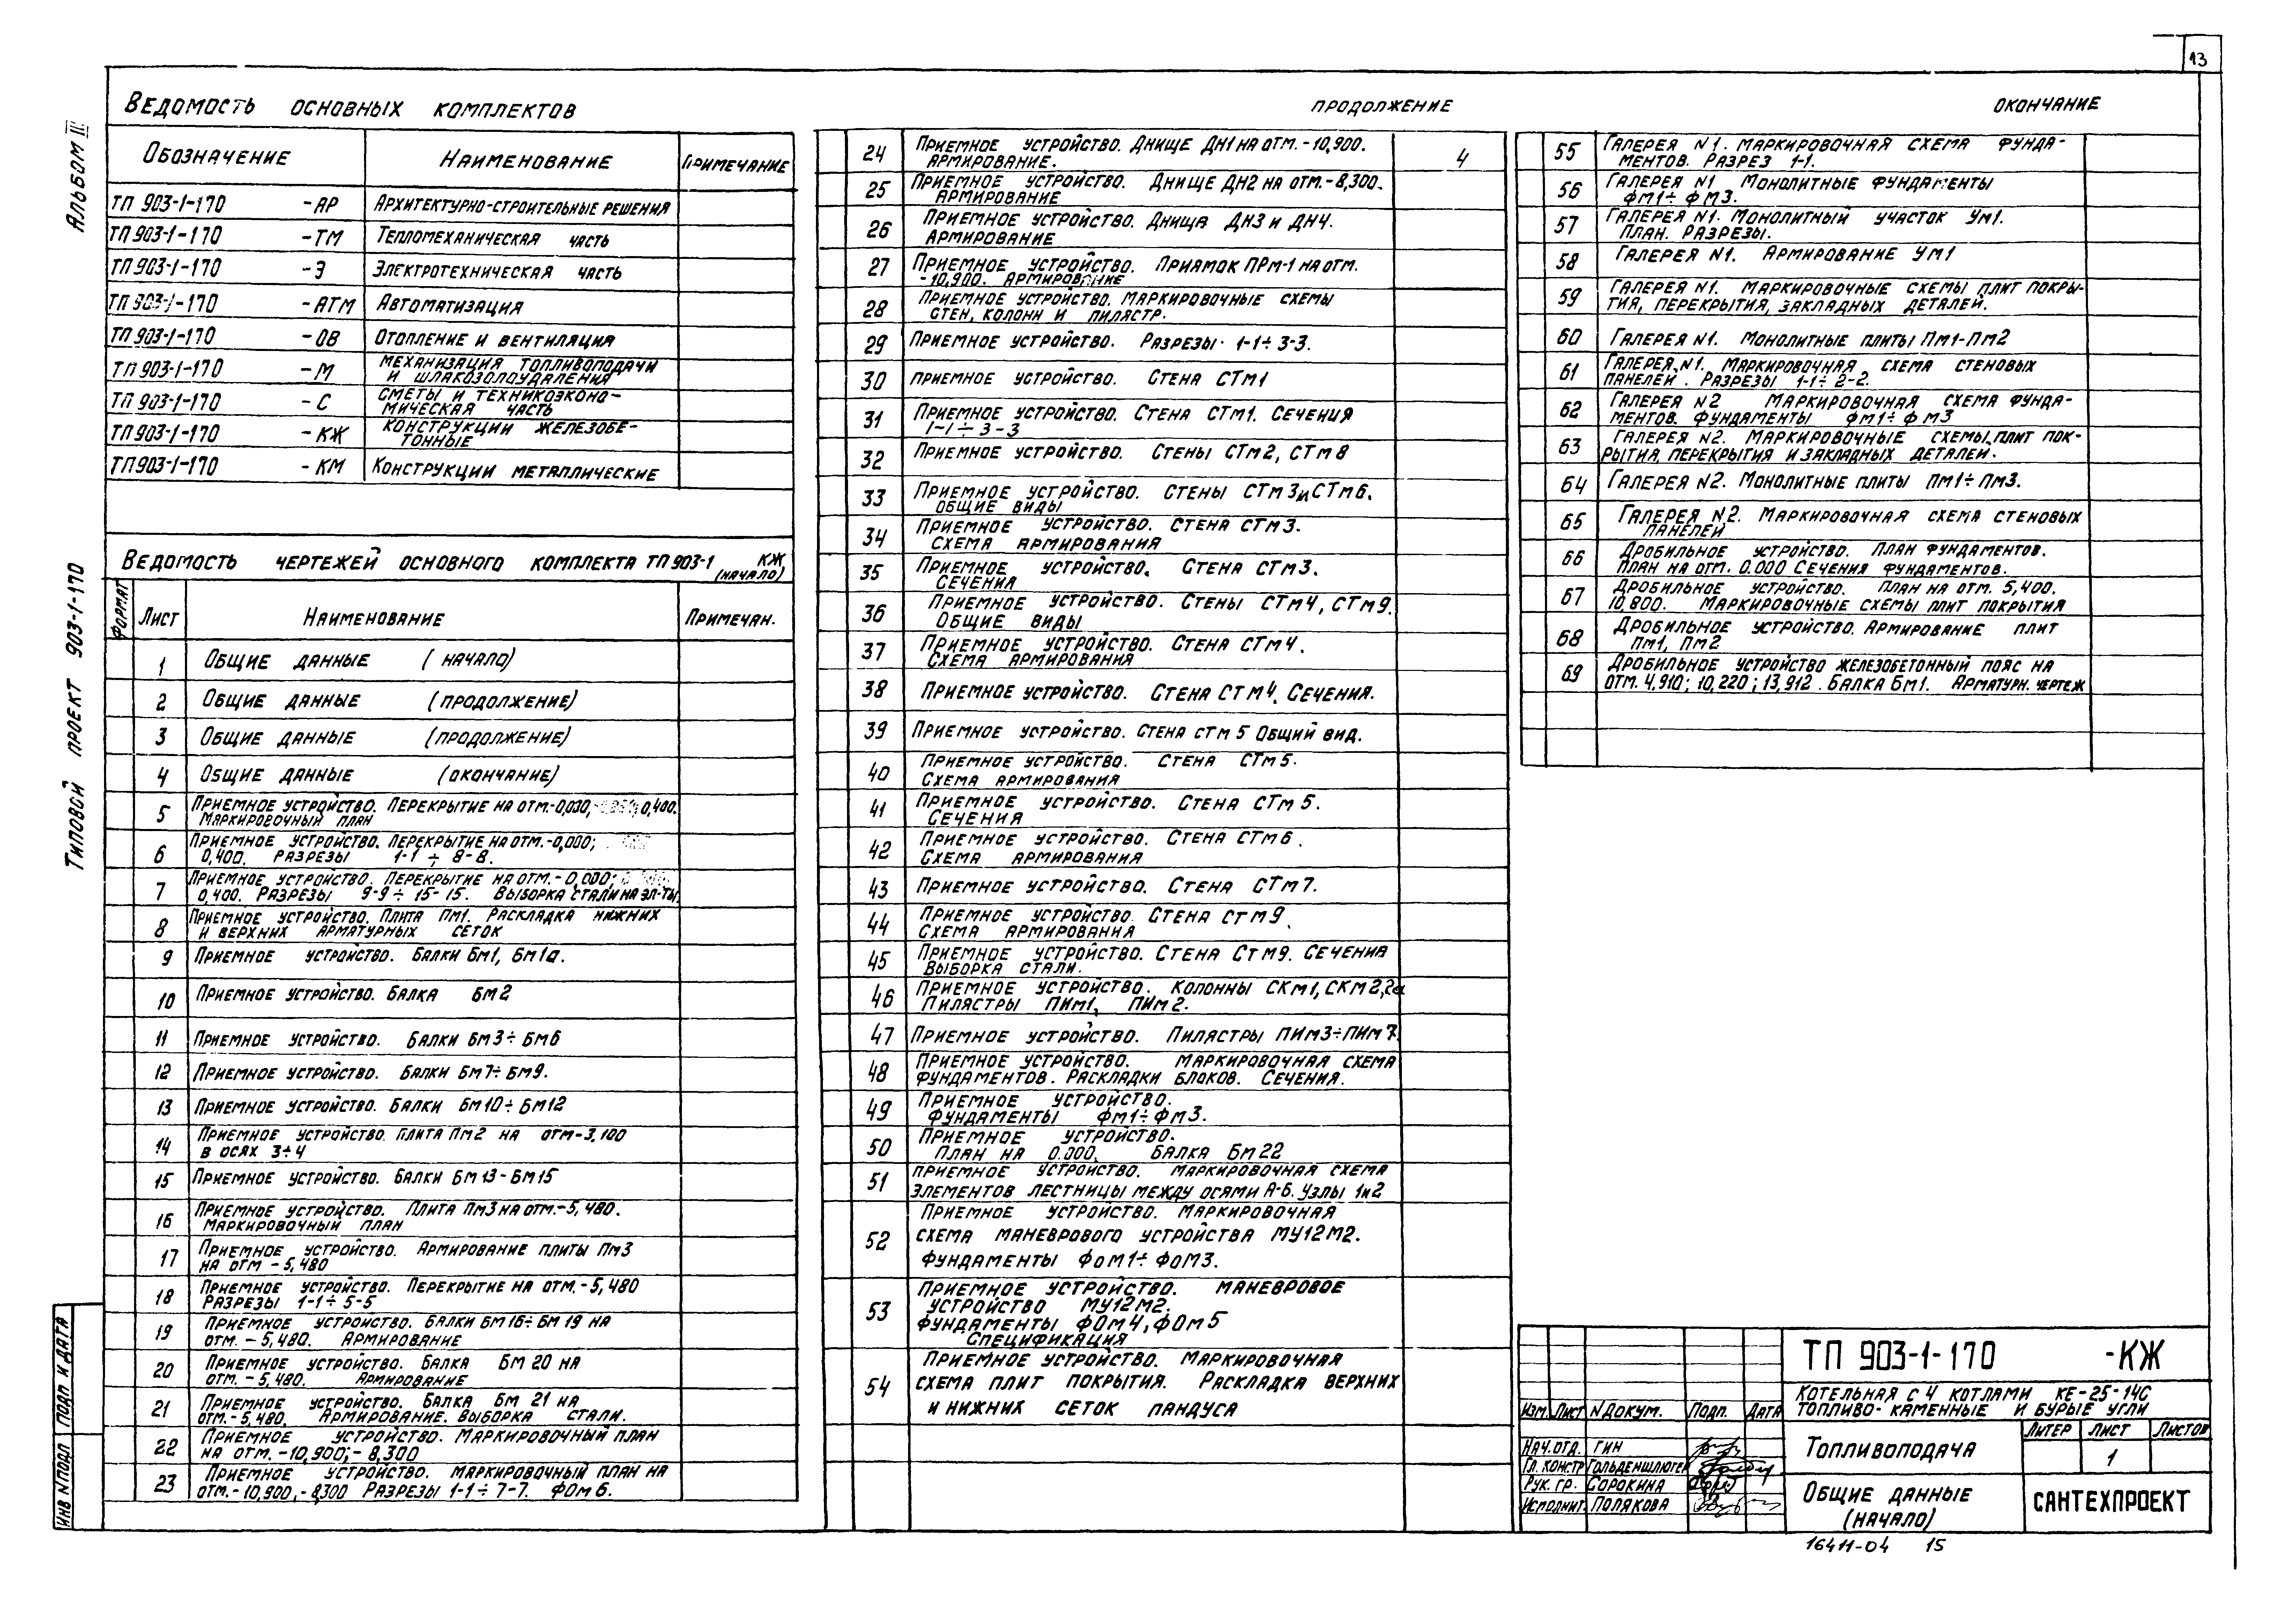 13
Альбом III
Типовой проект 903-1-170
Инв № подл
Подп и дата
Ведомость основных комплектов
Обозначение Наименование Примечание
ТП 903-1-170 -АР Архитектурно-строительные решения
ТП 903-1-170 -ТМ Тепломеханическая часть
ТП 903-1-170 -Э Электротехническая часть
ТП 903-1-170 -АТМ Автоматизация
ТП 903-1-170 -ОВ Отопление и вентиляция
ТП 903-1-170 -М Механизация топливоподачи
и шлакозолоудаления
ТП 903-1-170 -С Сметы и техникоэконо-
мическая часть
ТП 903-1-170 -КЖ Конструкции железобе-
тонные
ТП 903-1-170 -КМ Конструкции металлические
Ведомость чертежей основного комплекта ТП 903-1 КЖ
(начало)
Формат Лист Наименование Примечан.
1 Общие данные (начало)
2 Общие данные (продолжение)
3 Общие данные (продолжение)
4 Общие данные (окончание)
5 Приемное устройство. Перекрытие на отм.-0,030, 0,400.
Маркировочный план
6 Приемное устройство. Перекрытие на отм.-0,000;
0,400. Разрезы 1-1 ÷ 8-8.
7 Приемное устройство. Перекрытие на отм.-0,000;
0,400. Разрезы 9-9 ÷ 15-15. Выборка стали на эл-ты.
8 Приемное устройство. Плита Пм1. Раскладка нижних
и верхних арматурных сеток
9 Приемное устройство. Балки Бм1, Бм1а.
10 Приемное устройство. Балка Бм2
11 Приемное устройство. Балки Бм3÷Бм6
12 Приемное устройство. Балки Бм7÷Бм9.
13 Приемное устройство. Балки Бм10÷Бм12
14 Приемное устройство. Плита Пм2 на отм-3,100
в осях 3÷4
15 Приемное устройство. Балки Бм13-Бм15
16 Приемное устройство. Плита Пм3 на отм.-5,480.
Маркировочный план
17 Приемное устройство. Армирование плиты Пм3
на отм -5,480
18 Приемное устройство. Перекрытие на отм.-5,480
Разрезы 1-1÷5-5
19 Приемное устройство. Балки Бм16÷Бм19 на
отм.-5,480. Армирование
20 Приемное устройство. Балка Бм20 на
отм.-5,480. Армирование
21 Приемное устройство. Балка Бм 21 на
отм.-5,480. Армирование. Выборка стали.
22 Приемное устройство. Маркировочный план
на отм.-10,900;-8,300
23 Приемное устройство. Маркировочный план на
отм.-10,900,-8,300 Разрезы 1-1÷7-7. Фом6.
продолжение
24 Приемное устройство. Днище Дн1 на отм.-10,900. 4
Армирование.
25 Приемное устройство. Днище Дн2 на отм.-8,300.
Армирование
26 Приемное устройство. Днища Дн3 и Дн4.
Армирование
27 Приемное устройство. Приямок ПРм-1 на отм.
-10,900. Армирование
28 Приемное устройство. Маркировочные схемы
стен, колонн и пилястр.
29 Приемное устройство. Разрезы 1-1÷3-3.
30 Приемное устройство. Стена СТм1
31 Приемное устройство. Стена СТм1. Сечения
1-1÷3-3
32 Приемное устройство. Стены СТм2, СТм8
33 Приемное устройство. Стены СТм3 и СТм6.
Общие виды
34 Приемное устройство. Стена СТм3.
Схема армирования
35 Приемное устройство. Стена СТм3.
Сечения
36 Приемное устройство. Стены СТм4, СТм9.
Общие виды
37 Приемное устройство. Стена СТм4.
Схема армирования
38 Приемное устройство. Стена СТм4. Сечения.
39 Приемное устройство. Стена СТм5 Общий вид.
40 Приемное устройство. Стена СТм5.
Схема армирования
41 Приемное устройство. Стена СТм5.
Сечения
42 Приемное устройство. Стена СТм6.
Схема армирования
43 Приемное устройство. Стена СТм7.
44 Приемное устройство. Стена СТм9.
Схема армирования
45 Приемное устройство. Стена СТм9. Сечения
Выборка стали.
46 Приемное устройство. Колонны СКм1, СКм2,2а
Пилястры ПИм1, ПИм2.
47 Приемное устройство. Пилястры ПИм3÷ПИм7.
48 Приемное устройство. Маркировочная схема
фундаментов. Раскладки блоков. Сечения.
49 Приемное устройство.
Фундаменты Фм1÷Фм3.
50 Приемное устройство.
План на 0.000. Балка Бм22
51 Приемное устройство. Маркировочная схема
элементов лестницы между осями А-Б. Узлы 1и2
52 Приемное устройство. Маркировочная
схема маневрового устройства МУ12М2.
Фундаменты Фом1÷Фом3.
53 Приемное устройство. Маневровое
устройство МУ12М2.
Фундаменты Фом4, Фом5
Спецификация
54 Приемное устройство. Маркировочная
схема плит покрытия. Раскладка верхних
и нижних сеток пандуса
окончание
55 Галерея N1. Маркировочная схема фунда-
ментов. Разрез 1-1.
56 Галерея N1 Монолитные фундаменты
Фм1÷Фм3.
57 Галерея N1. Монолитный участок Ум1.
План. Разрезы.
58 Галерея N1. Армирование Ум1
59 Галерея N1. Маркировочные схемы плит покры-
тия, перекрытия, закладных деталей.
60 Галерея N1. Монолитные плиты Пм1-Пм2
61 Галерея N1. Маркировочная схема стеновых
панелей. Разрезы 1-1÷2-2.
62 Галерея N2 Маркировочная схема фунда-
ментов. Фундаменты Фм1÷Фм3
63 Галерея N2. Маркировочные схемы плит пок-
рытия, перекрытия и закладных деталей.
64 Галерея N2. Монолитные плиты Пм1÷Пм3.
65 Галерея N2. Маркировочная схема стеновых
панелей
66 Дробильное устройство. План фундаментов.
План на отм. 0.000 Сечения фундаментов.
67 Дробильное устройство. План на отм. 5,400.
10,800. Маркировочные схемы плит покрытия
68 Дробильное устройство. Армирование плит
Пм1, Пм2
69 Дробильное устройство железобетонный пояс на
отм. 4,910; 10,220; 13,912. Балка Бм1. Арматурн. чертеж
ТП 903-1-170 -КЖ
Котельная с 4 котлами КЕ-25-14С
Топливо-каменные и бурые угли
Изм. Лист N докум. Подп. Дата
Нач. отд. Гин
Гл. констр Гольденшлюгер
Рук. гр. Сорокина
Исполнит. Полякова
Топливоподача
Литер Лист Листов
1
Общие данные
(начало)
САНТЕХПРОЕКТ
16411-04 15